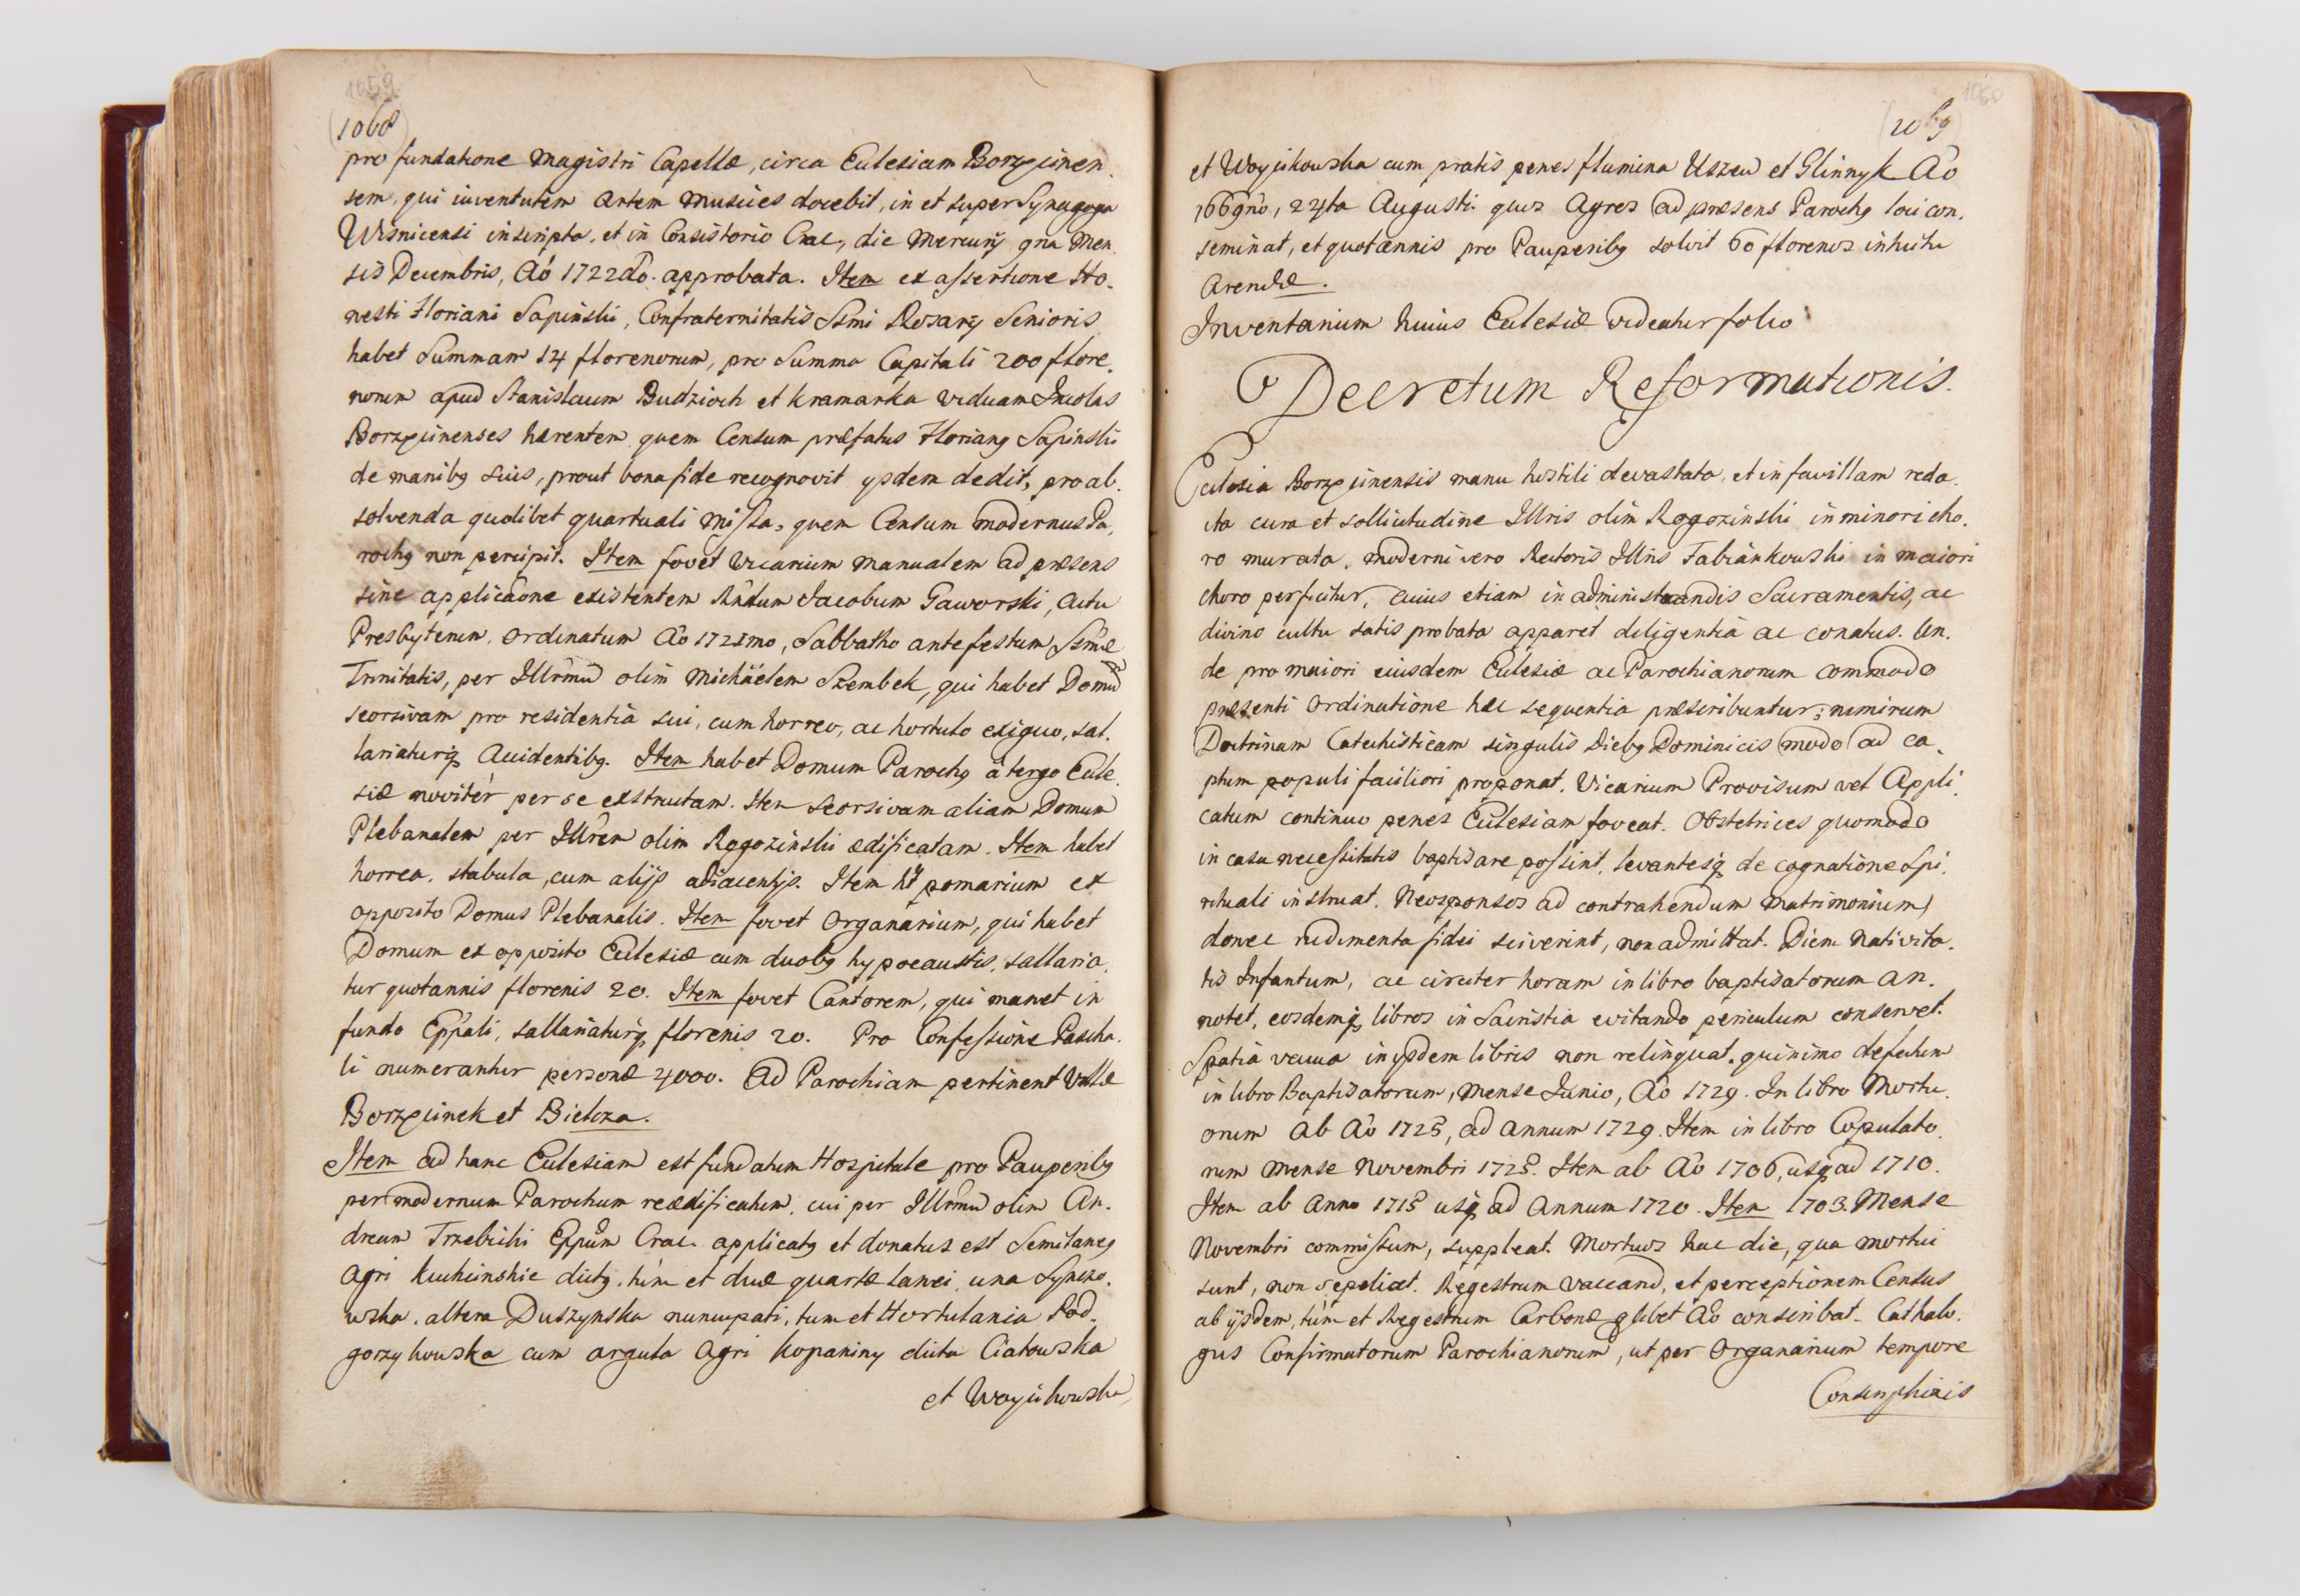 1059
1068
pro fundatione Magistri Capellæ, circa Eclesiam Borzęcinen.
sem, qui iuventutem Artem Musices docebit, in et super Synagoga
Wisnicensi inscripta, et in Consistorio Crac, die Mercurÿ 9na Men.
sis Decembris, Aó 1722do. approbata. Item ex assertione Ho.
nesti Floriani Sapinski, Confraternitatis Ssmi Rosarÿ Senioris
habet Summam 14 florenorum, pro Summa Capitali 200 flore.
norum apud Stanislaum Budzioch et Kramarka viduam Incolas
Borzęcinenses hærentem quem Censum præfatus Florianꝯ Sapinski
de manibꝯ suis, prout bona fide recognovit ÿsdem dedit, pro ab.
solvenda qualibet quartuali Missa, quem Censum modernus Pa.
rochꝯ non percipit. Item fovet Vicarium Manualem ad præsens
sine applicãone existentem Rńdum Jacobum Gaworski, Actu
Presbyterum. Ordinatum Aó 1721mo, Sabbatho ante festum Ssmæ
Trinitatis, per Illrmũ olim Michäelem Szembek, qui habet Domũ
seorsivam pro residentia sui, cum horreo, ac hortulo exiguo, sal.
lariaturq̃ Accidentibꝯ. Item habet Domum Parochꝯ à tergo Ecle.
siæ novitèr per se exstructam. Item Seorsivam aliam Domum
Plebanalem per Illrẽm olim Rogozinski ædificatam. Item habet
horrea, stabula, cum alÿs adiacentÿs. Item ht pomarium ex
opposito Domus Plebanalis. Item fovet Organarium, qui habet
Domum ex opposito Eclesiæ cum duobꝯ hypocaustis, sallaria.
tur quotannis florenis 20. Item fovet Cantorem, qui manet in
fundo Eppali, sallariaturq̃ florenis 20. Pro Confessione Pascha.
li numerantur personæ 4000. Ad Parochiam pertinent Villæ
Borzęcinek et Bielcza.
Item ad hanc Eclesiam est fundatum Hospitale pro Pauperibꝯ
per modernum Parochum reædificatum, cui per Illrmũ olim An.
dream Trzebicki Eppũm Crac. applicatꝯ et donatus est Semilaneꝯ
Agri Kuchcinskie dictꝯ, tùm et duæ quartæ lanei, una Synczo.
wska, altera Duszynska nuncupati, tum et Hortulania Pod.
gorzykowska cum arguta Agri Kopaniny dicta Ciatowska
et Woycikowska
1060
1069
et Woycikowska cum pratis penes flumina Uszew et Glinnyk Aó
1669no, 24ta Augusti. quos Agros ad præsens Parochꝯ loci con.
seminat, et quotannis pro Pauperibꝯ solvit 60 florenos intuitu
Arendæ.
Inventarium huius Eclesiæ videatur folio
Decretum Reformationis.
Eclesia Borzęcinensis manu hostili devastata, et in favillam reda.
cta cura et sollicitudine Illris olim Rogozinski in minori cho.
ro murata, moderni vero Rectoris Illris Fabiankowski in maiori
choro perficitur, cuius etiam in administrandis Sacramentis, ac
divino cultu satis probata apparet diligentia ac conatus. Un.
de pro maiori eiusdem Eclesiæ ac Parochianorum commodo
præsenti Ordinatione hæc sequentia præscribuntur; nimirum
Doctrinam Catechisticam singulis Diebꝯ Dominicis modo ad ca.
ptum populi faciliori proponat. Vicarium Provisum vel Appli.
catum continuo penes Eclesiam foveat. Obstetrices quomodo
in casu necessitatis baptisare possint, levantesq̃ de cognatione Spi.
rituali instruat. Neosponsos ad contrahendum Matrimonium,
donec rudimenta fidei sciverint, non admittat. Diem Nativita.
tis Infantum, ac circiter horam in libro baptisatorum an.
notet, eosdemq̃ libros in Sacristia evitando periculum conservet.
Spatia vacua in ÿsdem libris non relinquat, quinimo defectum
in libro Baptisatorum, Mense Junio, Aó 1729. In libro Mortu.
orum ab Aó 1725, ad annum 1729. Item in libro Copulato.
rum Mense Novembri 1728. Item ab Aó 1706, usq̃ ad 1710.
Item ab Anno 1718 usq̃ ad Annum 1720. Item 1703. Mense
Novembri commissum, suppleat. Mortuos hac die, qua mortui
sunt, non sepeliat. Regestrum vaccarũ, et perceptionem Census
ab ÿsdem, tùm et Regestrum Carbonæ qlibet Aó conscribat. Cathalo.
gus Confirmatorum Parochianorum, ut per Organarium tempore
Conscriptionis